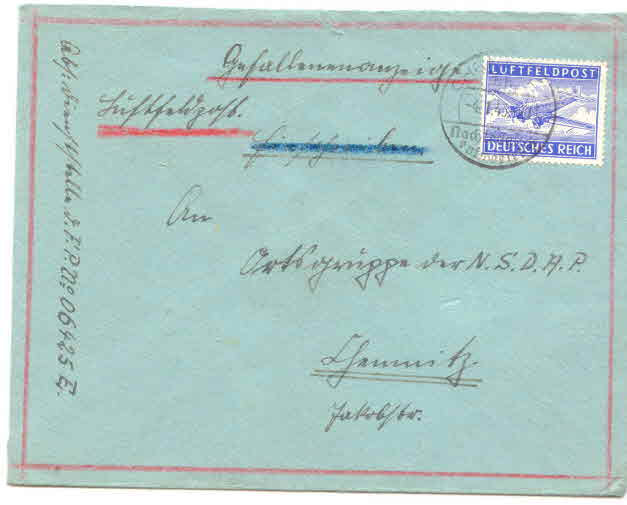 Gefallenenanzeige
LUFTFELDPOST
DEUTSCHES REICH
Luftfeldpost.
Einschreiben
An
Ortsgruppe der N.S.D.A.P.
Chemnitz.
Jakobstr.
Abs: Dienststelle d. F.P. No 06425 E.